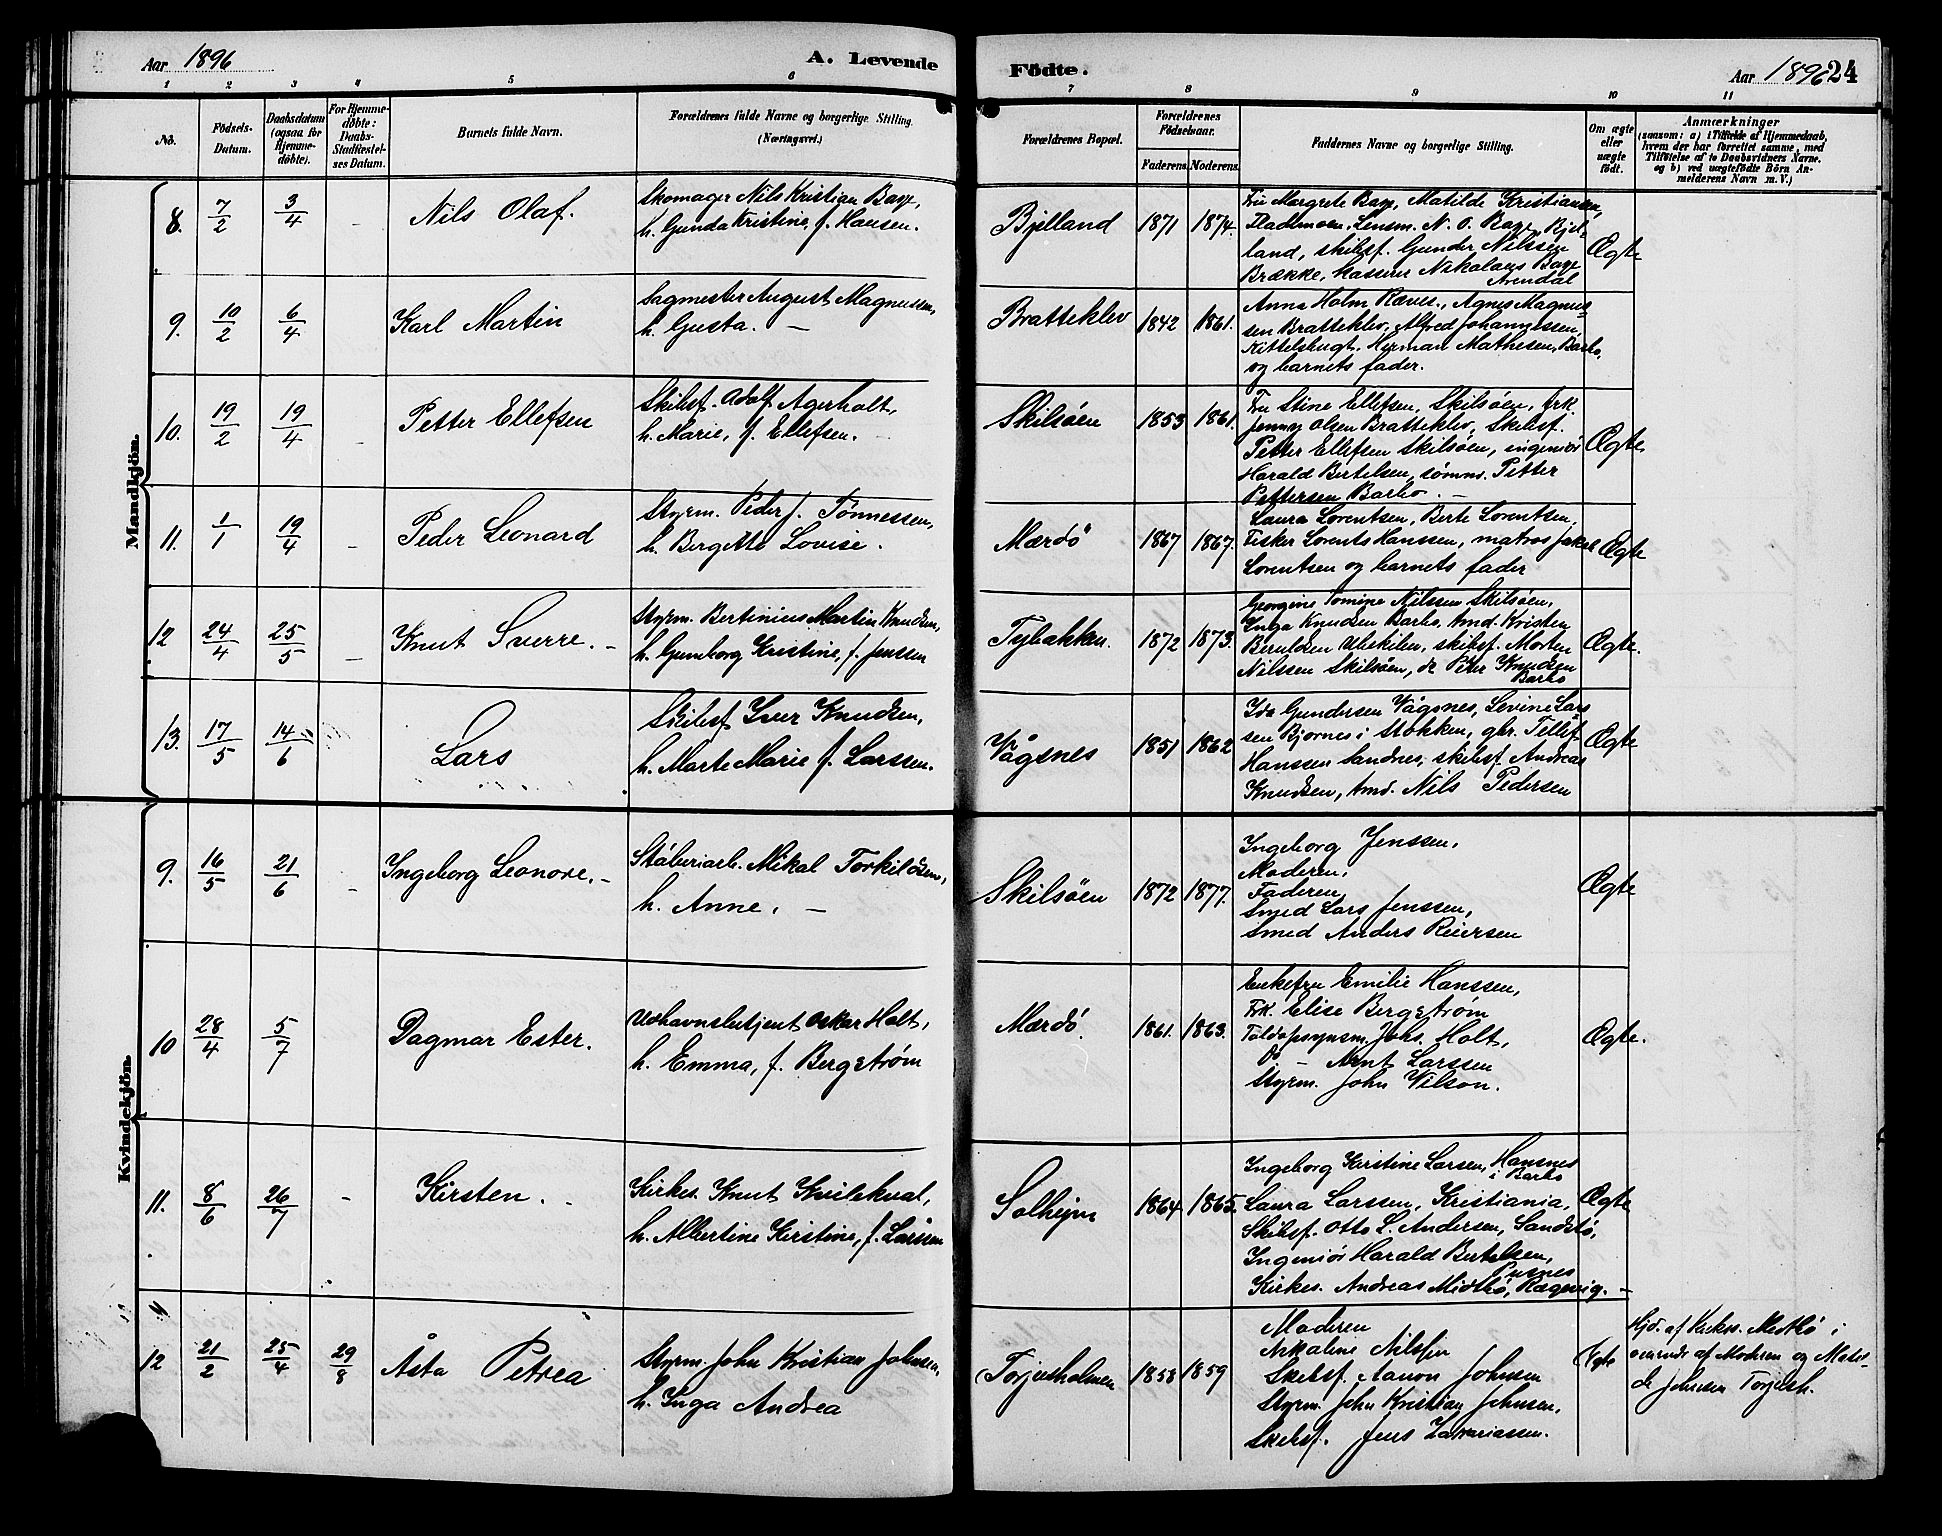 Aar 1896
A. Levende
Födte.
Aar 1896
24
1 2 3 4 5 6 7 8 9 10 11
No.
Födsels-
Datum.
Daabsdatum
(ogsaa for
Hjemme-
döbte).
For Hjemme-
döbte:
Daabs-
Stadfæstel-
ses Datum.
Barnets fulde Navn.
Forældrenes fulde Navne og borgerlige Stilling.
(Næringsvei.)
Forældrenes Bopæl.
Forældrenes
Födselsaar.
Faderens. Moderens.
Faddernes Navne og borgerlige Stilling.
Om ægte
eller
uægte
födt.
Anmærkninger
(saasom: a) i Tilfælde af Hjemmedaab,
hvem der har forrettet samme, med
Tilföielse af to Daabsvidners Navne.
og b) ved uægtefödte Börn An-
melderens Navn m. V.)
Mandkjön.
8. 7/2 3/4 - Nils Olaf.
Skomager Nils Kristian Bage,
h. Gunda Kristine, f. Hansen.
Bjelland 1871 1874.
Fru Margrete Bage, Matilde Kristiansen,
Lensm. N. O. Bage, Bjel-
land, skibsf. Gunder Nilssen
Brække, kasserer Nikolaus Bage
Arendal
Ægte
9. 10/2 6/4 Karl Martin
Sagmester August Magnussen,
h. Gusta. -
Bratteklev 1842 1861.
Anna Holm Ræves., Agnes Magnus-
sen Bratteklev, Alfred Johannessen,
Kittelsbugt. Herman Mathesen, Barbo,
og barnets fader.
10. 19/2 19/4 - Petter Ellefsen
Skibsf. Adolf Agerholt,
h. Marie, f. Ellefsen.
Skilsöen 1853 1861.
Fru Stine Ellefsen, Skilsöen, frk.
Jenny Olsen Bratteklev, Skibsf.
Petter Ellefsen Skilsöen, ingeniör
Harald Bertelsen, sömm. Petter
Pettersen Barbo. -
Ægte
11. 1/1 19/4 - Peder Leonard
Styrm. Peder J. Tönnessen,
h. Bergette Lovise.
Mærdö 1867 1867.
Laura Lorentsen, Berte Lorentsen,
Fisker Lorents Hanssen, matros Jakob
Lorentsen og barnets fader
Ægte
12 24/4 25/5 - Knut Sverre. -
Styrm. Bertinius Martin Knudsen,
h. Gunborg Kristine, f. Jenssen
Tybakken. 1872 1873.
Georgine Tomine Nilssen Skilsöen,
Inga Knudsen Barbo, tmd. Kristen
Beruldsen Ubekilen, skibsf. Morten
Nilssen Skilsöen, do Peter Knudsen
Barbo
Ægte.
13. 17/5 14/6 Lars
Skibsf Iver Knudsen,
h. Marte Marie f. Larssen.
Vågsnes 1851 1862
Ida Gundersen Vågsnes, Levine Lars-
sen Bjornes i Stokken, gbr. Tellef
Hanssen Sandnes, skibsf. Andreas
Knudsen, tmd. Nils Pedersen
Ægte
Kvindekjön.
9. 16/5 21/6 - Ingeborg Leonore. -
Støberiarb. Mikal Torkildsen,
h. Anne. -
Skilsöen 1872 1877.
Ingeborg Jenssen,
Moderen,
Faderen,
Smed Lars Jenssen,
Smed Anders Reiersen
Ægte
10 28/4 5/7 Dagmar Ester.
Udhavnsbetjent Oskar Holt,
h. Emma, f. Bergström
Mærdö. 1861. 1863.
Enkefru Emilie Hanssen,
Frk. Elise Bergström
Toldopsynsm. Johs. Holt,
Do. - Arnt Larssen
Styrm. John Wilson.
Ægte.
11. 8/6 26/7 - Kirsten. -
Kirkes. Knut Kvilekval,
h. Albertine Kirstine, f. Larssen
Solhejm 1864 1865.
Ingeborg Kirstine Larsen, Hansnes
i Barbo
Laura Larssen, Kristiania,
Skibsf. Otto L. Andersen, Sandstö,
Ingeniör Harald Bertelsen,
Pusnes
Kirkes. Andreas Midtbö, Rægevig. -
Ægte
12 21/2 25/4 29/8 Åsta Petrea
Styrm. John Kristian Johnsen,
h. Inga Andrea
Torjusholmen 1858 1859
Moderen
Nikaline Nilssen
Skibsf. Aanon Johnsen
Styrm. John Kristian Johnsen,
Skibsf. Jens Zakariassen.
Ægte
Hjd. af Kirkes. Midtbö i
overvær af Moderen og Matil-
de Johnsen Torjush.